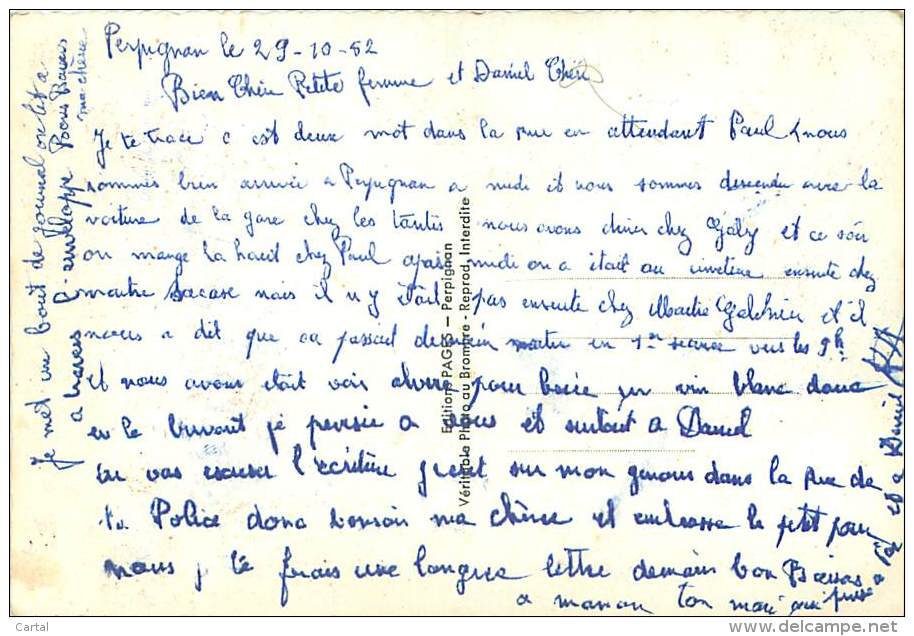 Perpignan le 29-10-52
Bien Chère Petite femme et Daniel Chéri
Je te trace c est deux mot dans la rue en attendant Paul nous
sommes bien arrivée a Perpignan a midi et nous sommes descendu avec la
voiture de la gare chez les tantes nous avons diner chez Galy et ce soir
on mange la haut chez Paul apres midi on a était au cimetiere ensuite chez
maitre mais il n y était pas ensuite chez et il
nous a dit que ca passait demain matin en 1ere vers les 9h
et nous avons était voir pour boire un vin blanc donc
en le buvant je pensée a vous et surtout a Daniel
tu vas excuser l'ecriture j'ecrit sur mon genoux dans la Rue de
la Police donc bonsoir ma chère et embrasse le petit pour
nous, je te frais une longue lettre demain bon Baisers
a maman ton mari qui pense a toi et a Daniel
Je met un bout de journal on lit a
a travers l'enveloppe Bons Baisers
ma chère
Editions PAGES — Perpignan
Véritable Photo au Bromure - Reprod. Interdite
Cartal
www.delcampe.net